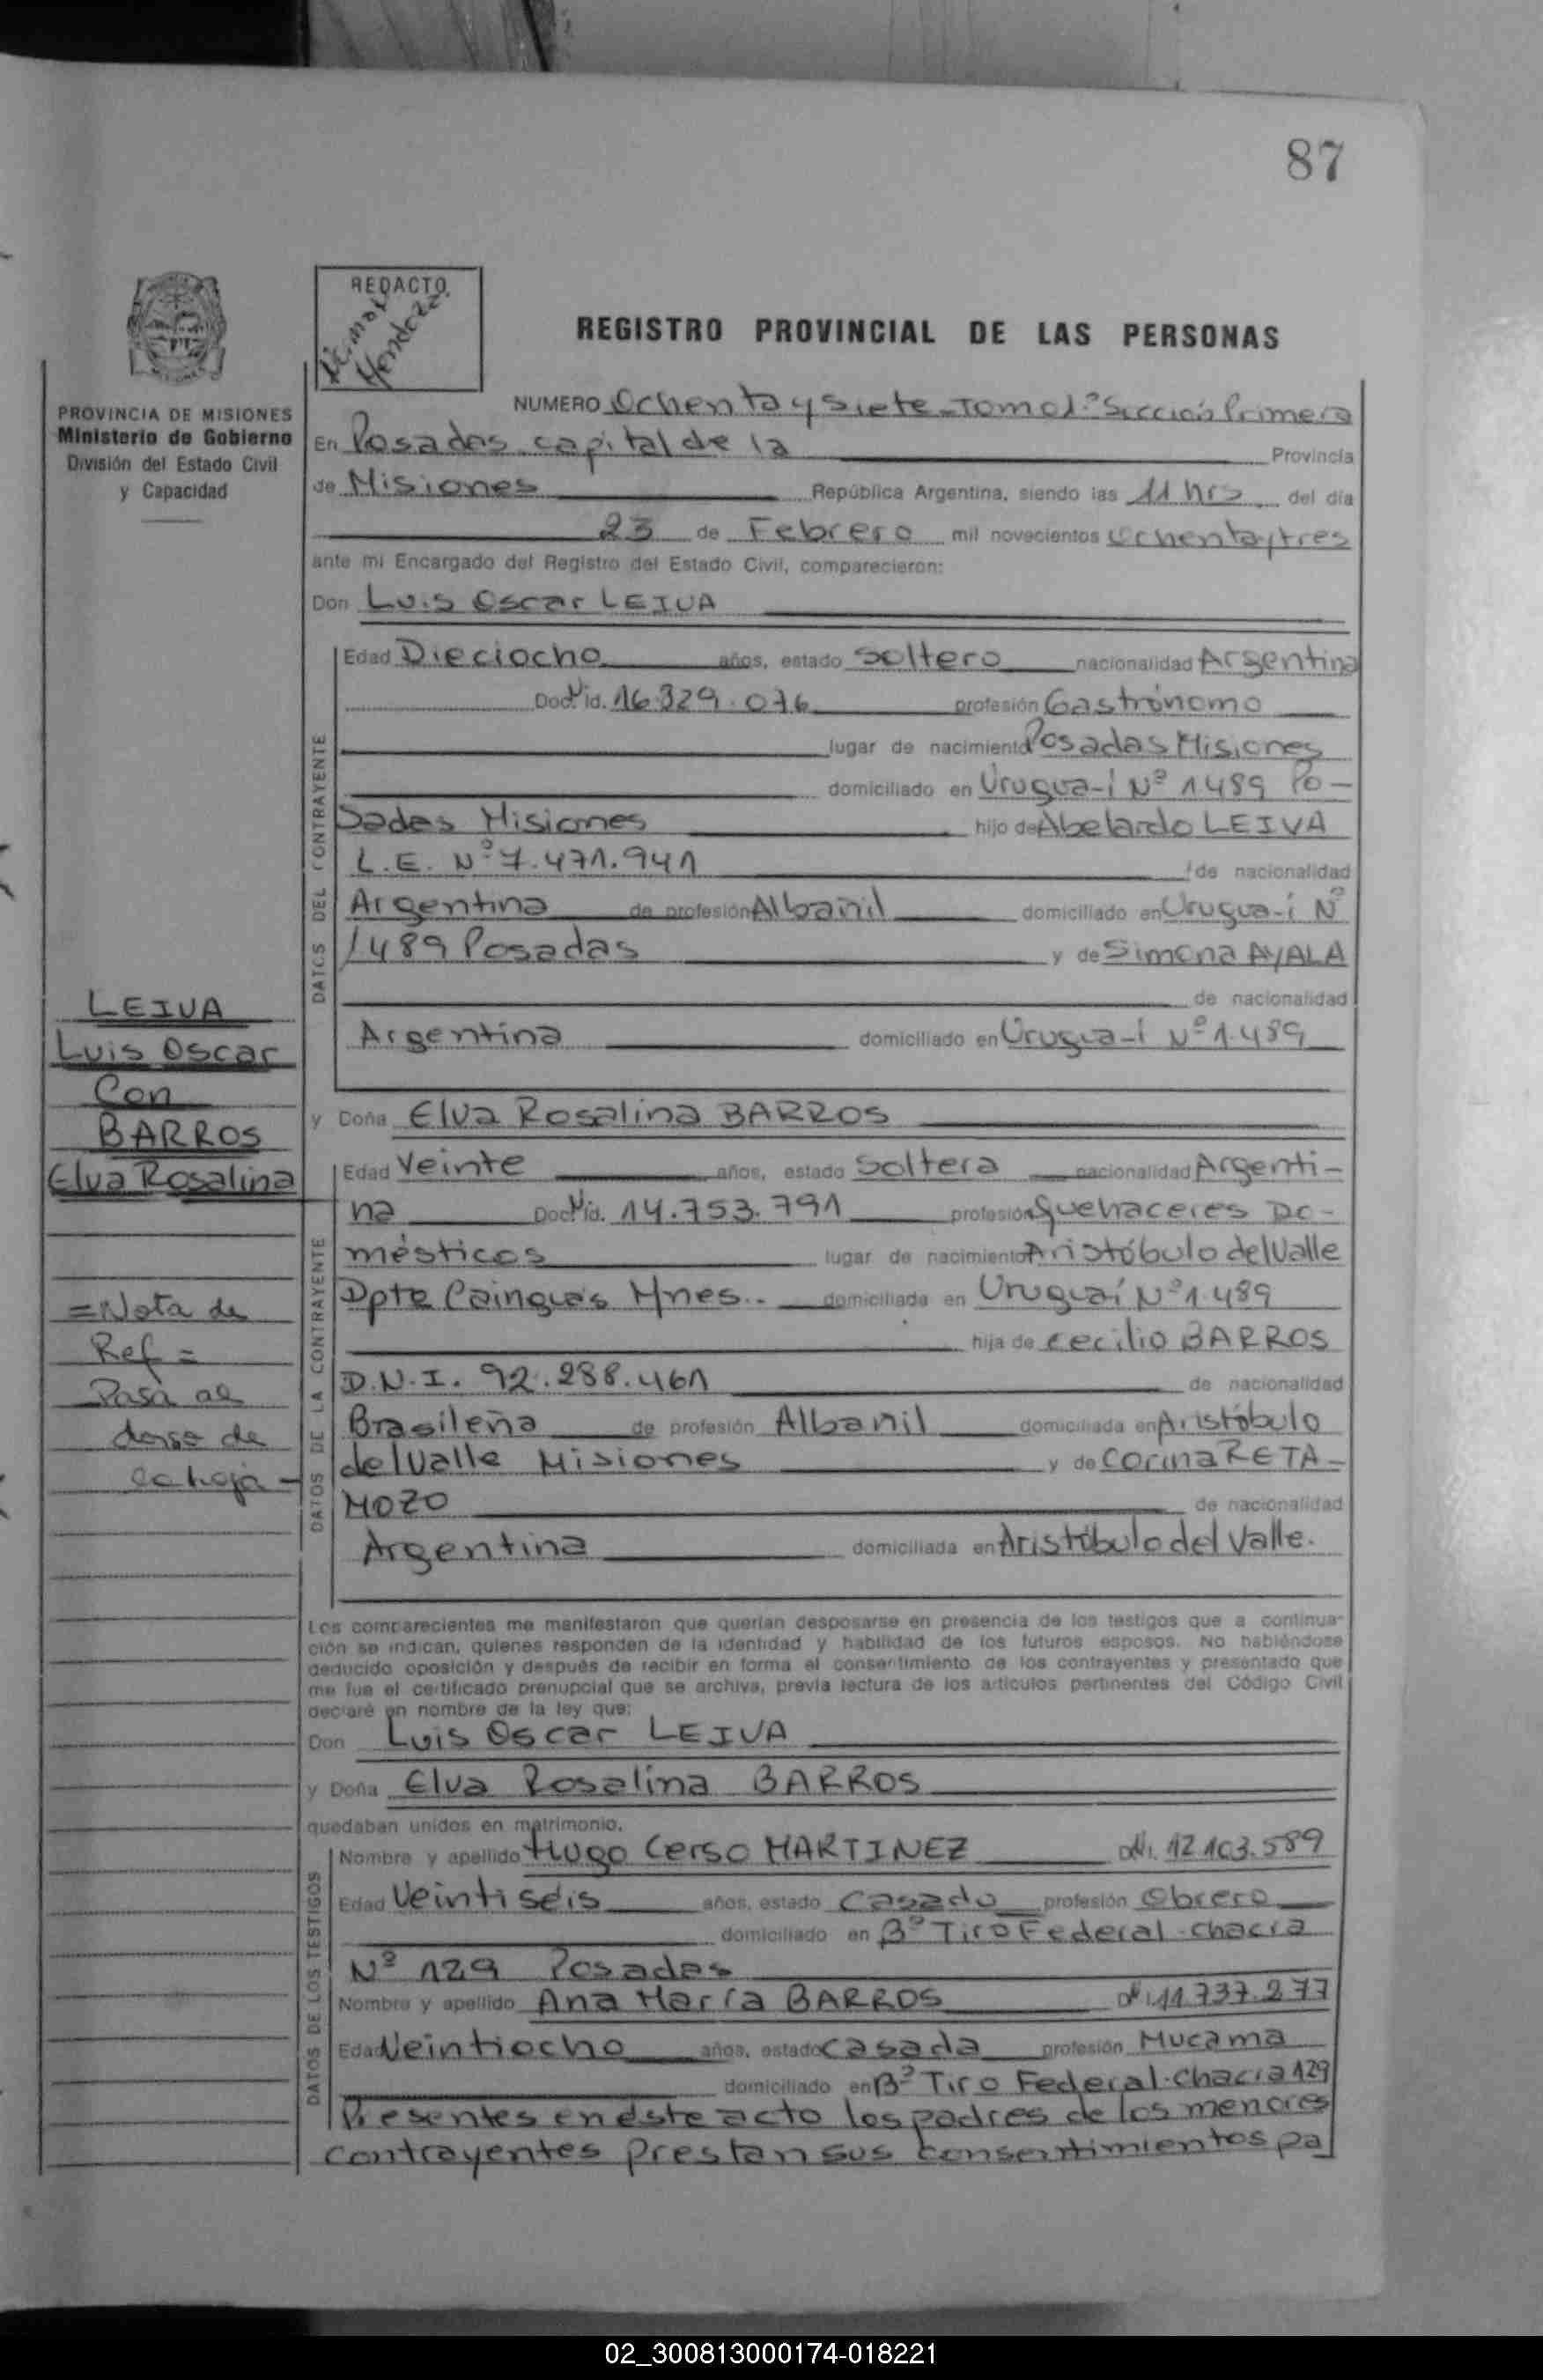 87
REDACTO
Mendoza
REGISTRO PROVINCIAL DE LAS PERSONAS
PROVINCIA DE MISIONES
Ministerio de Gobierno
División del Estado Civil
y Capacidad
NUMERO Ochenta y siete - Tomo 1º Sección Primera
En Posadas capital de la Provincia
de Misiones República Argentina, siendo las 11 hrs del día
23 de Febrero mil novecientos ochenta y tres
ante mi Encargado del Registro del Estado Civil, comparecieron:
Don Luis Oscar LEIVA
DATOS DEL CONTRAYENTE
Edad Dieciocho años, estado soltero nacionalidad Argentina
Doc. id. 16.329.076 profesión Gastrónomo
lugar de nacimiento Posadas Misiones
domiciliado en Urugua-í Nº 1489 Po-
sadas Misiones hijo de Abelardo LEIVA
L.E. Nº 7.471.941 de nacionalidad
Argentina de profesión Albañil domiciliado en Urugua-í Nº
1489 Posadas y de Simona AYALA
de nacionalidad
Argentina domiciliado en Urugua-í Nº 1.489
LEIVA
Luis Oscar
Con
BARROS
Elva Rosalina
=Nota de
Ref =
Pasa al
dorso de
la hoja -
y Doña Elva Rosalina BARROS
DATOS DE LA CONTRAYENTE
Edad Veinte años, estado soltera nacionalidad Argenti-
na Doc. id. 14.753.791 profesión Quehaceres Do-
mésticos lugar de nacimiento Aristóbulo del Valle
Dpto Cainguás Mnes.. domiciliada en Uruguaí Nº 1.489
hija de Cecilio BARROS
D.N.I. 92.288.461 de nacionalidad
Brasileña de profesión Albanil domiciliada en Aristóbulo
del Valle Misiones y de Corina RETA-
MOZO de nacionalidad
Argentina domiciliada en Aristóbulo del Valle.
Los comparecientes me manifestaron que querían desposarse en presencia de los testigos que a continua-
ción se indican, quienes responden de la identidad y habilidad de los futuros esposos. No habiéndose
deducido oposición y después de recibir en forma el consentimiento de los contrayentes y presentado que
me fue el certificado prenupcial que se archiva, previa lectura de los artículos pertinentes del Código Civil
declaré en nombre de la ley que:
Don Luis Oscar LEIVA
y Doña Elva Rosalina BARROS
quedaban unidos en matrimonio.
DATOS DE LOS TESTIGOS
Nombre y apellido Hugo Cerso MARTINEZ DNi. 12.103.589
Edad Veintiseis años, estado casado profesión Obrero
domiciliado en Bº Tiro Federal - chacra
Nº 129 Posadas
Nombre y apellido Ana María BARROS 11.737.277
Edad Veintiocho años, estado casada profesión Mucama
domiciliado en Bº Tiro Federal - Chacra 129
Presentes en éste acto los padres de los menores
contrayentes prestan sus consentimientos pa
02_300813000174-018221